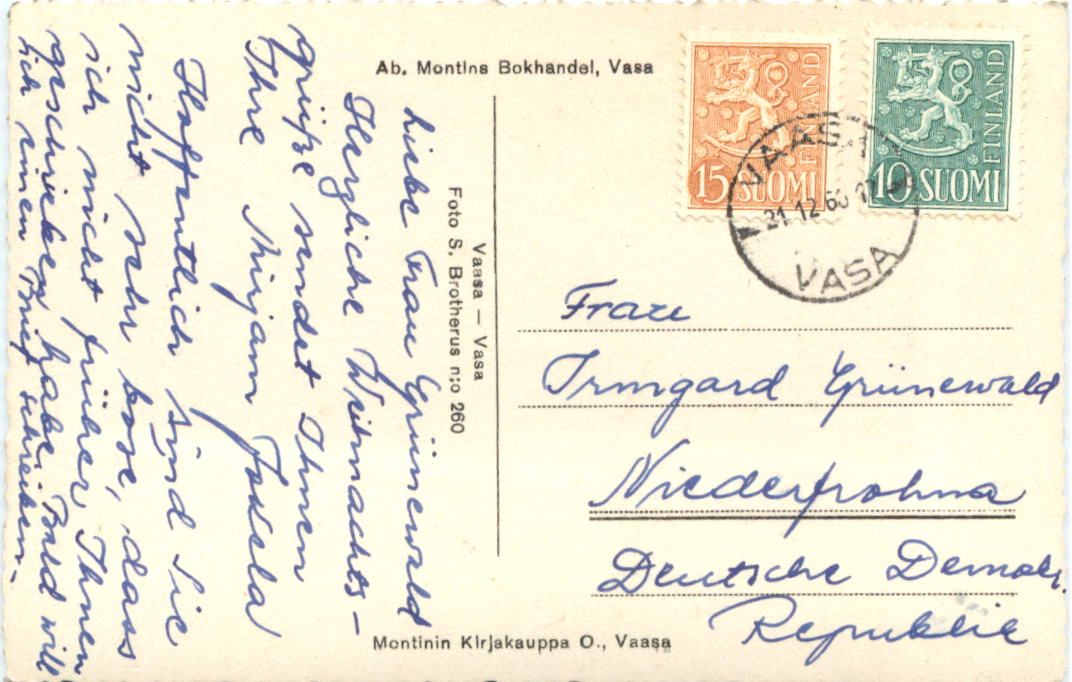 Ab. Montins Bokhandel, Vasa
Liebe Frau Grünewald
Herzliche Weihnachts-
grüße sendet Ihnen
Ihre Mirjam
Hoffentlich sind Sie
nicht sehr böse, dass
ich nicht früher Ihnen
geschrieben habe. Bald will
ich einen Brief schreiben.
Vaasa — Vasa
Foto S. Brotherus n:o 260
Montinin Kirjakauppa O., Vaasa
15 SUOMI
FINLAND
10 SUOMI
FINLAND
VAASA
21.12.60
VASA
Frau
Irmgard Grünewald
Niederfrohna
Deutsche Demokr.
Republik